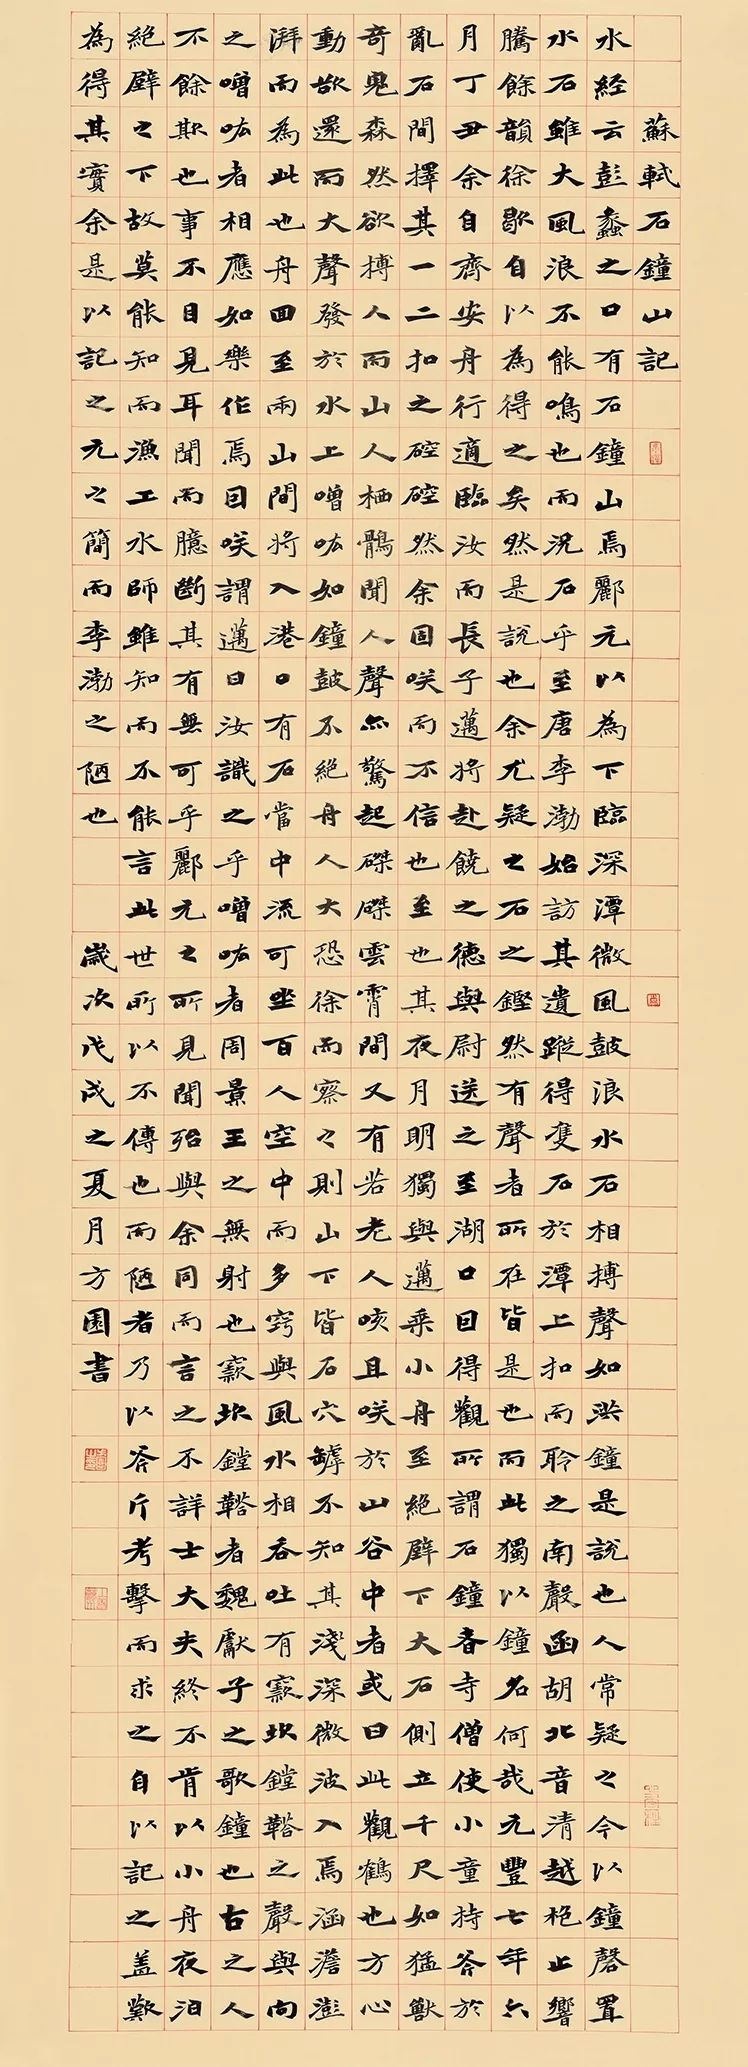 蘇軾石鐘山記
水経云彭蠡之口有石鐘山焉酈元以為下臨深潭微風鼓浪水石相搏聲如洪鐘是說也人常疑之今以鐘磬置
水石雖大風浪不能鳴也而況石乎至唐李渤始訪其遺蹤得隻石於潭上扣而聆之南聲函胡北音清越枹止響
騰餘韻徐歇自以為得之矣然是說也余尤疑之石之鏗然有聲者所在皆是也而此獨以鐘名何哉元豐七年六
月丁丑余自齊安舟行適臨汝而長子邁將赴饒之德與尉送之至湖口因得觀所謂石鐘者寺僧使小童持斧於
亂石間擇其一二扣之硿硿然余固咲而不信也至也其夜月明獨與邁乘小舟至絕壁下大石側立千尺如猛獸
奇鬼森然欲搏人而山人栖鶻聞人聲亦驚起磔磔雲霄間又有若老人咳且咲於山谷中者或曰此觀鶴也方心
動欲還而大聲發於水上噌吰如鐘鼓不絕舟人大恐徐而察々則山下皆石穴罅不知其淺深微波入焉涵澹澎
湃而為此也舟回至兩山間將入港口有石當中流可坐百人空中而多竅與風水相吞吐有窾坎鏜鞳之聲與向
之噌吰者相應如樂作焉因咲謂邁曰汝識之乎噌吰者周景王之無射也窾坎鏜鞳者魏獻子之歌鐘也古之人
不餘欺也事不目見耳聞而臆斷其有無可乎酈元之所見聞殆與余同而言之不詳士大夫終不肯以小舟夜泊
絕壁之下故莫能知而漁工水師雖知而不能言此世所以不傳也而陋者乃以斧斤考擊而求之自以記之盖歎
為得其實余是以記之元之簡而李渤之陋也 歲次戊戌之夏月方園書